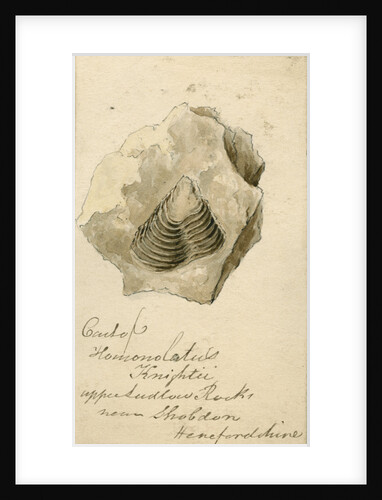 Cast of
Homonolatus
Knightii
upper Ludlow Rocks
near Shobdon
Herefordshire